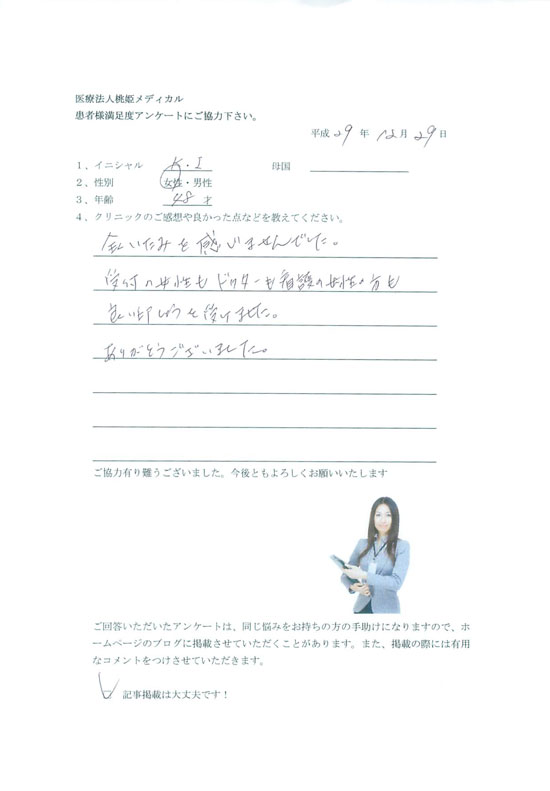 医療法人桃姫メディカル
患者様満足度アンケートにご協力下さい。
平成 29 年 12 月 29 日
1、イニシャル K・I 母国
2、性別 女性・男性
3、年齢 48 才
4、クリニックのご感想や良かった点などを教えてください。
全くいたみを感じませんでした。
受付の女性もドクターも看護の女性の方も
良い印しょうを受けました。
ありがとうございました。
ご協力有り難うございました。今後ともよろしくお願いいたします
ご回答いただいたアンケートは、同じ悩みをお持ちの方の手助けになりますので、ホ
ームページのブログに掲載させていただくことがあります。また、掲載の際には有用
なコメントをつけさせていただきます。
記事掲載は大丈夫です！